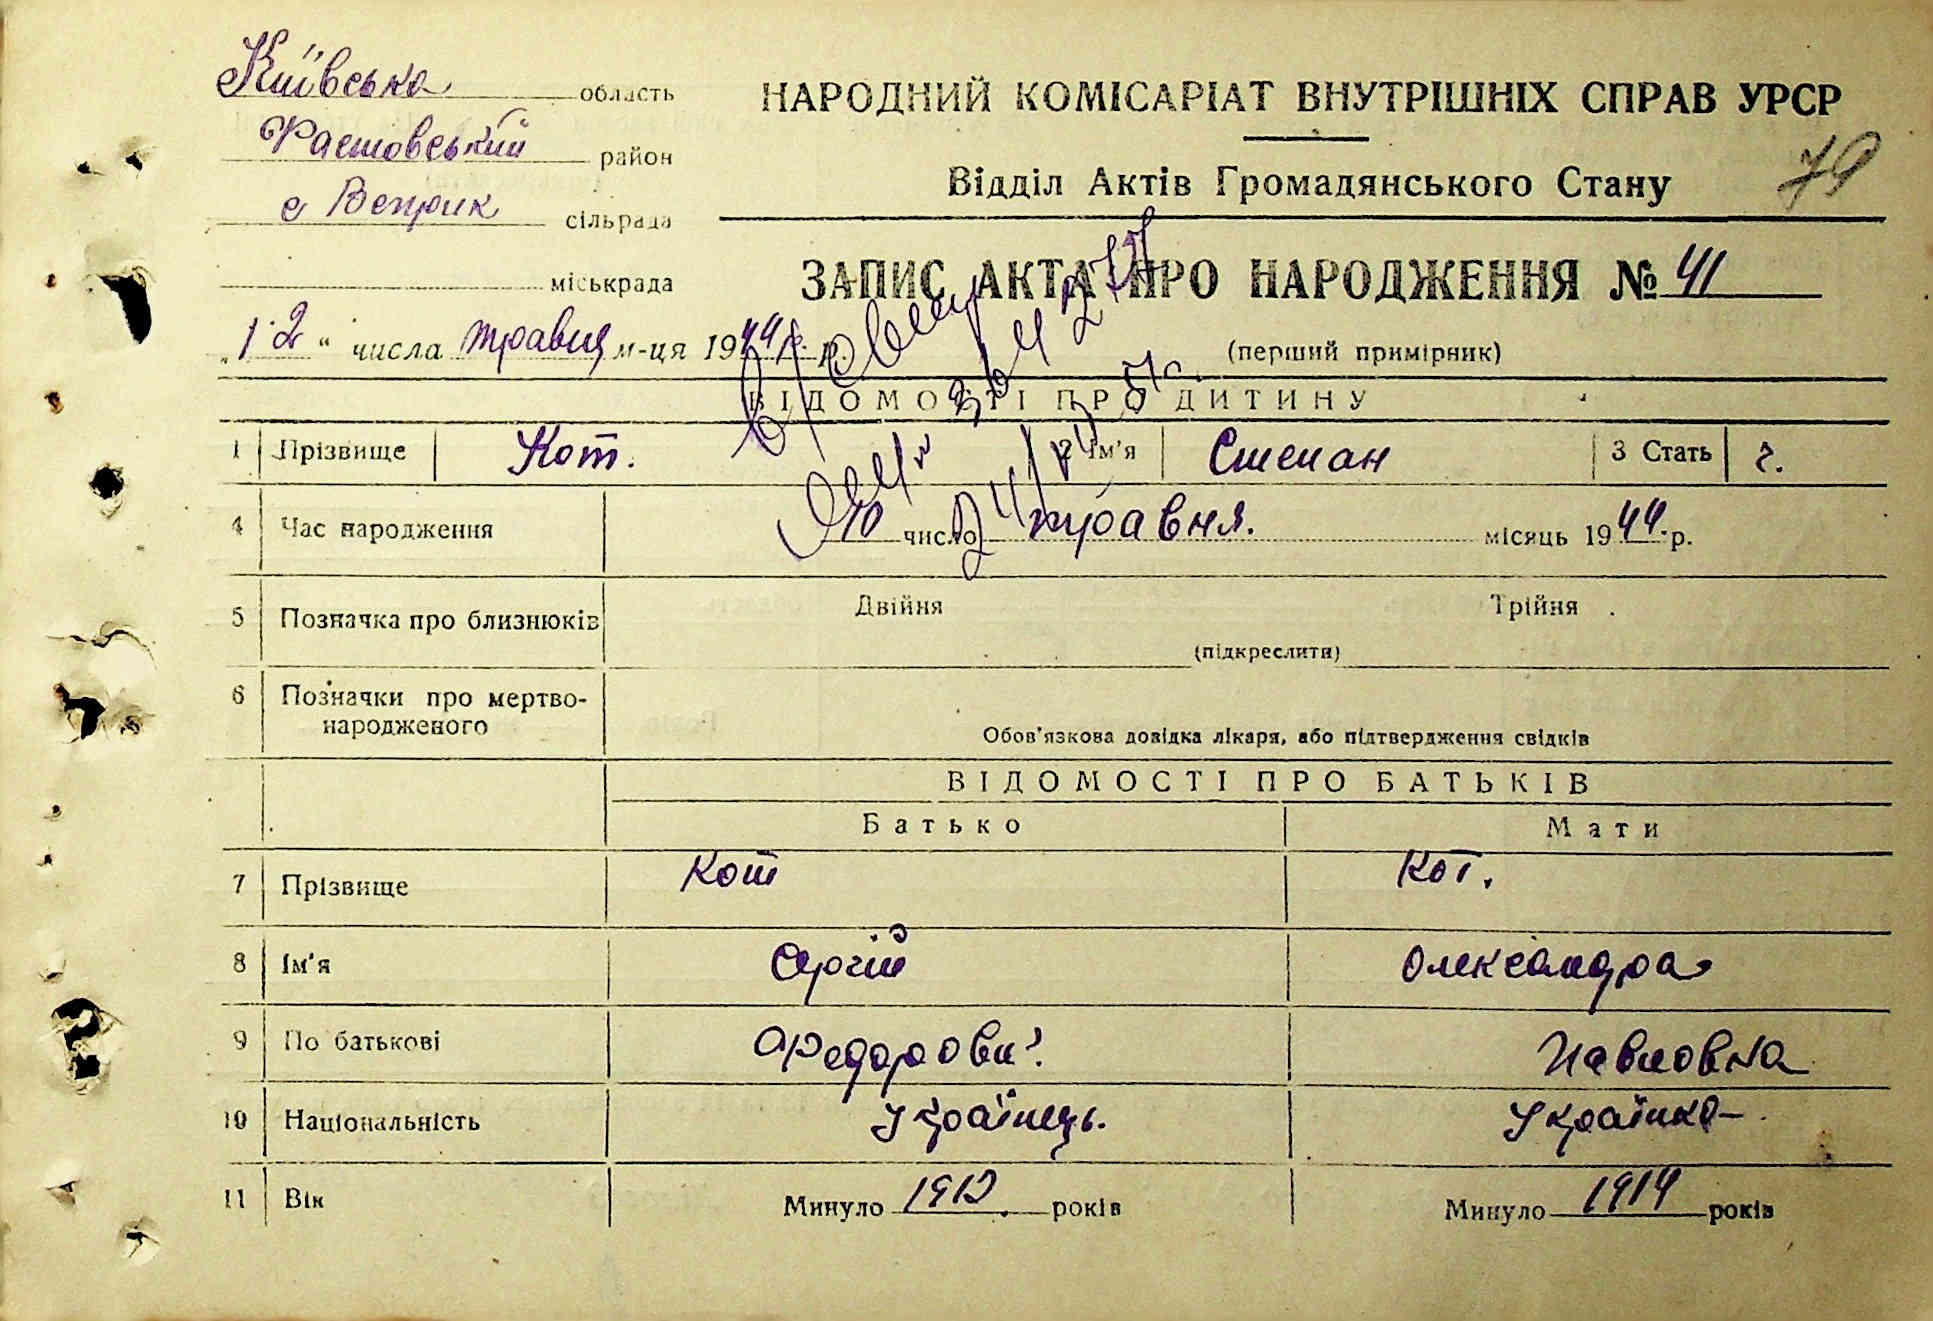 Київська область
НАРОДНИЙ КОМІСАРІАТ ВНУТРІШНІХ СПРАВ УРСР
Фастовський район
79
Відділ Актів Громадянського Стану
с Веприк сільрада
міськрада
ЗАПИС АКТА ПРО НАРОДЖЕННЯ № 41
„12“ числа травня м-ця 1944 р.
(перший примірник)
ВІДОМОСТІ ПРО ДИТИНУ
1 Прізвище Кот. 2 Ім'я Степан 3 Стать ч.
4 Час народження 10 число травня. місяць 1944 р.
5 Позначка про близнюків Двійня Трійня
(підкреслити)
6 Позначки про мертво-
народженого
Обов'язкова довідка лікаря, або підтвердження свідків
ВІДОМОСТІ ПРО БАТЬКІВ
Батько Мати
7 Прізвище Кот Кот.
8 Ім'я Сергій Олександра
9 По батькові Федорович Павловна
10 Національність Українець. Українка
11 Вік Минуло 1912 років Минуло 1914 років